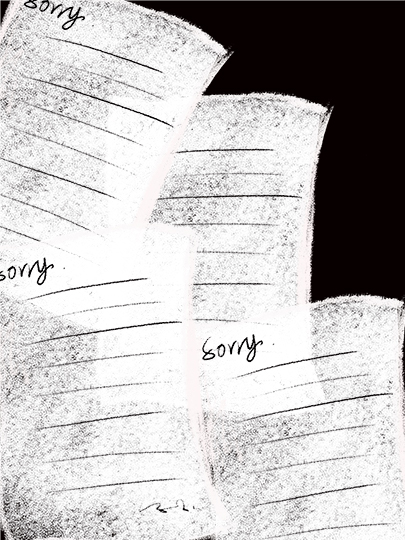 sorry
sorry.
sorry.